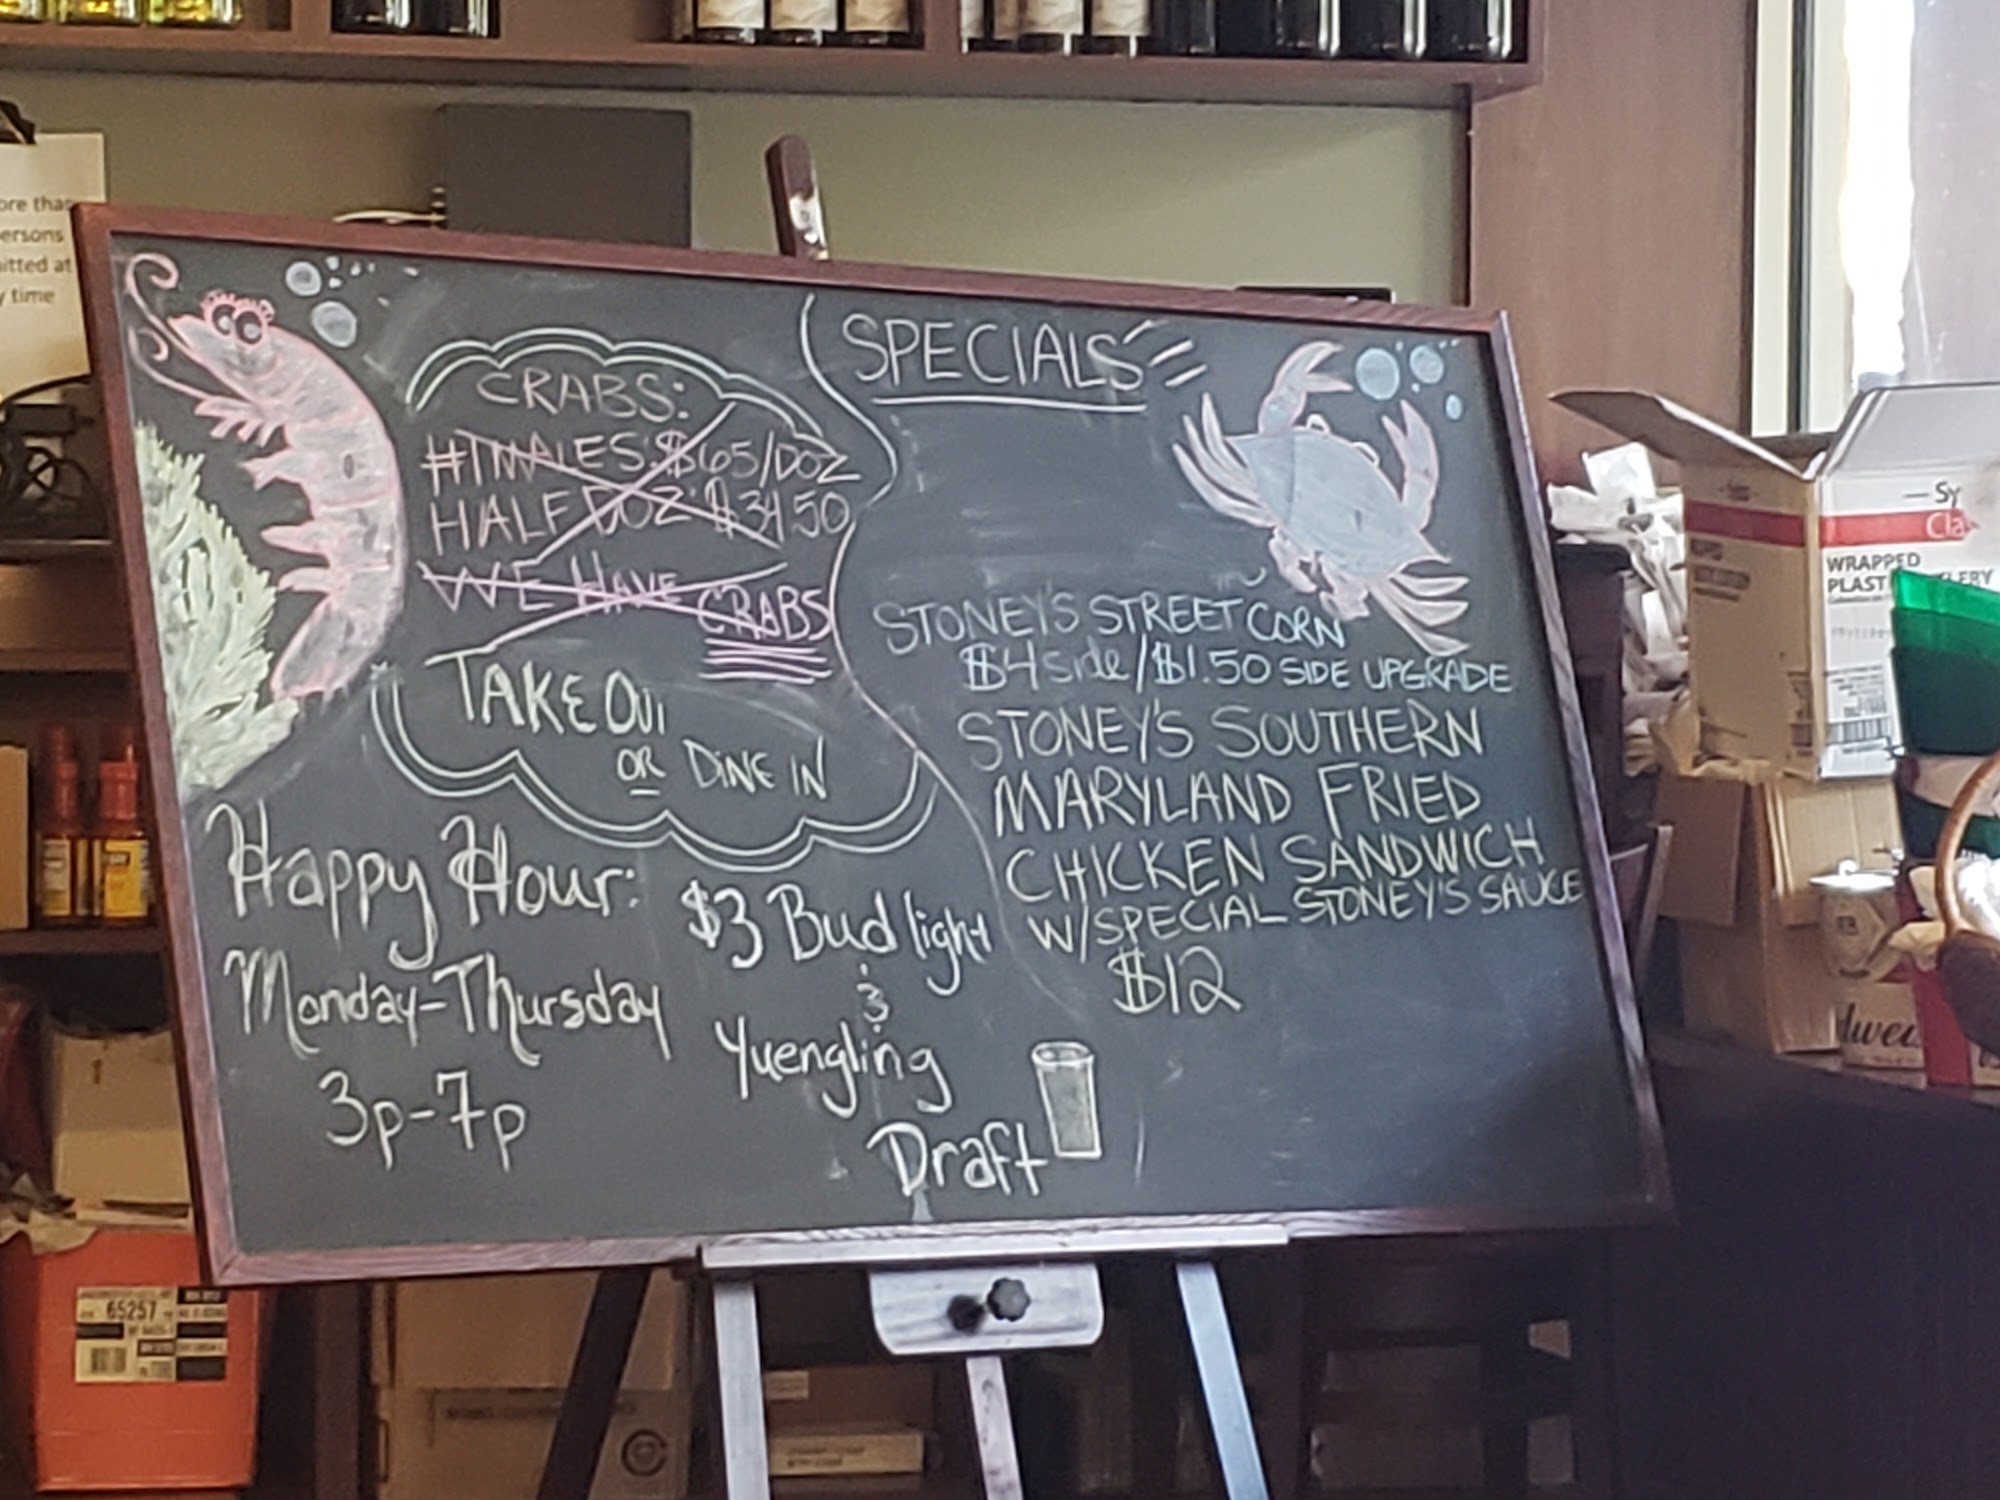 ore than
ersons
itted at
y time
CRABS:
#1 MALES: $65/DOZ
HALF DOZ: $34.50
WE HAVE CRABS
TAKE OUT
OR DINE IN
Happy Hour:
Monday-Thursday
3p-7p
$3 Bud light
&
Yuengling
Draft
SPECIALS
STONEY'S STREET CORN
$4 side/$1.50 SIDE UPGRADE
STONEY'S SOUTHERN
MARYLAND FRIED
CHICKEN SANDWICH
W/SPECIAL STONEY'S SAUCE
$12
Sy
Cla
WRAPPED
PLAST LERY
65257
dwei